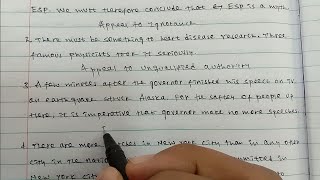 ESP. We must therefore conclude that ESP is a myth.
Appeal to Ignorance
2. There must be something to heart disease research. Three
famous physicists took it seriously.
Appeal to unqualified authority
3. A few minutes after the governor finished his speech on TV
an earthquake struck Alaska. For the safety of people up
there, it is imperative that governor make no more speeches.
4. There are more in New York city than in any other
city in the nation committed in
New York city